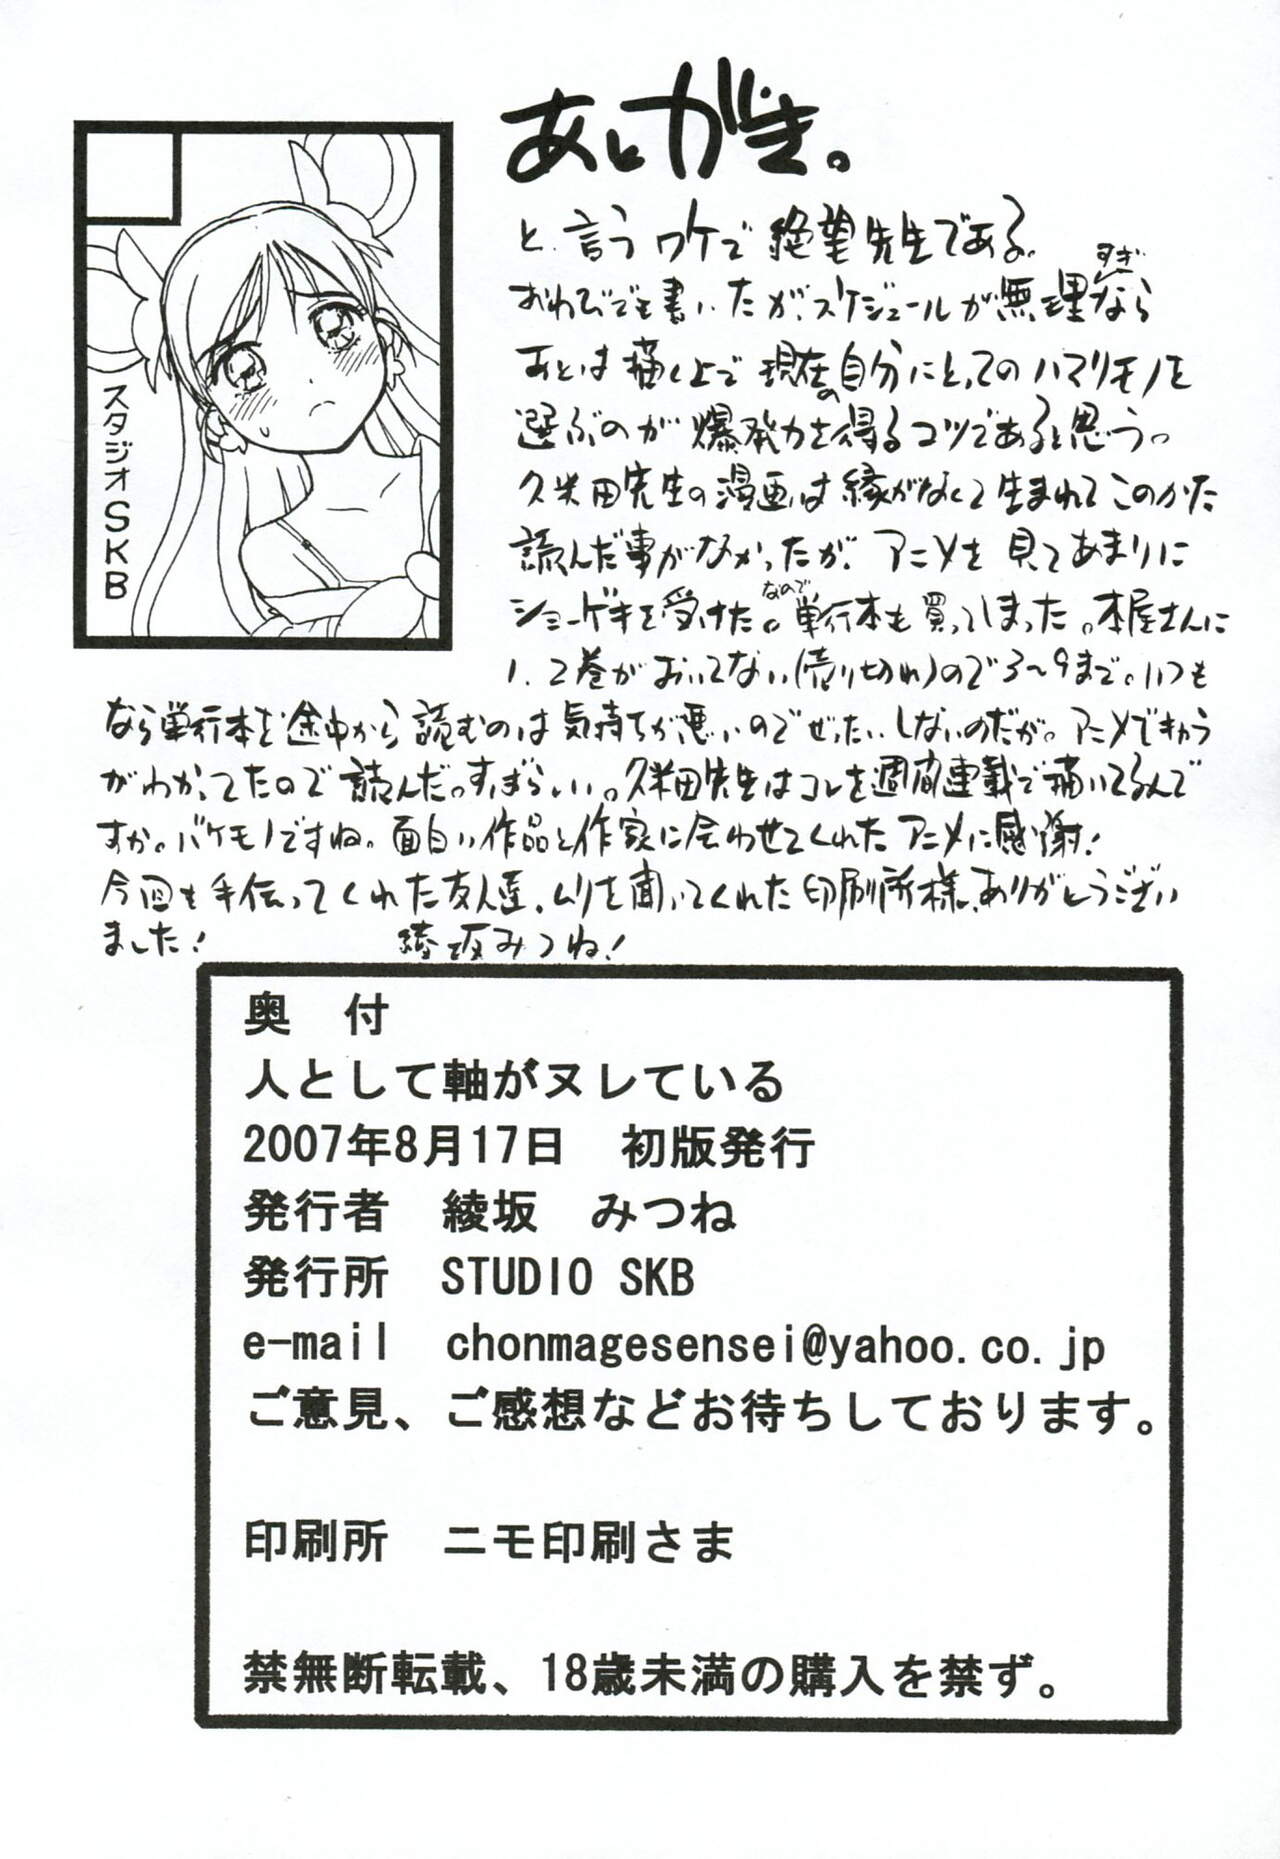 あとがき。
と言うワケで絶望先生である。
おわびでも書いたが、スケジュールが無理すぎなら
あとは描く上で現在の自分にとってのハマリモノを
選ぶのが爆発力を得るコツであると思う。
久米田先生の漫画は縁がなくて生まれてこのかた
読んだ事がなかったが、アニメを見てあまりに
ショーゲキを受けた。なので単行本も買ってしまった。本屋さんに
1、2巻がおいてない(売り切れ)ので3~9まで。いつも
なら単行本を途中から読むのは気持ちが悪いのでぜったいしないのだが。アニメできゅう
がわかってたので読んだ。すばらしい。久米田先生はコレを週間連載で描いてるんで
すか。バケモノですね。面白い作品と作家に会わせてくれたアニメに感謝!
今回も手伝ってくれた友人達、ムリを聞いてくれた印刷所様、ありがとうござい
ました! 綾坂みつね!
スタジオSKB
奥 付
人として軸がヌレている
2007年8月17日 初版発行
発行者 綾坂 みつね
発行所 STUDIO SKB
e-mail chonmagesensei@yahoo.co.jp
ご意見、ご感想などお待ちしております。
印刷所 ニモ印刷さま
禁無断転載、18歳未満の購入を禁ず。